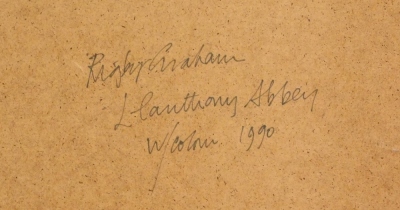 Rigby Graham
Llanthony Abbey
W/colour 1990